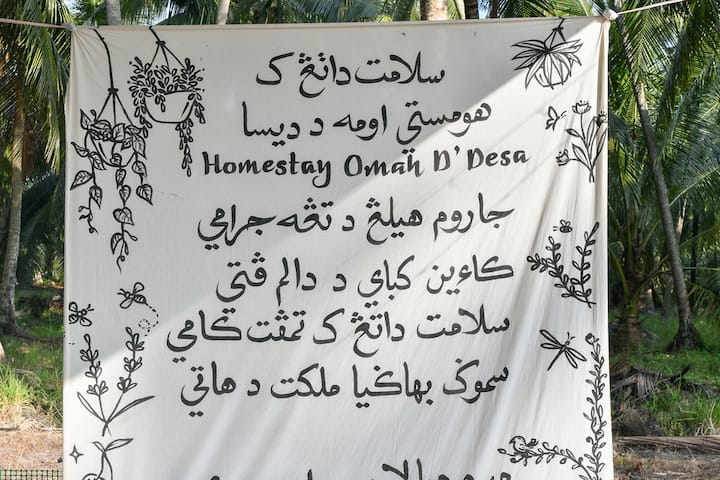 سلامت داتڠ ک
هومستي اومه د ديسا
Homestay Omah D' Desa
جاروم هيلڠ د تڠه جرامي
کاءين کباي د دالم ڤتي
سلامت داتڠ ک تمڤت کامي
سموݢ بهاݢيا ملکت د هاتي